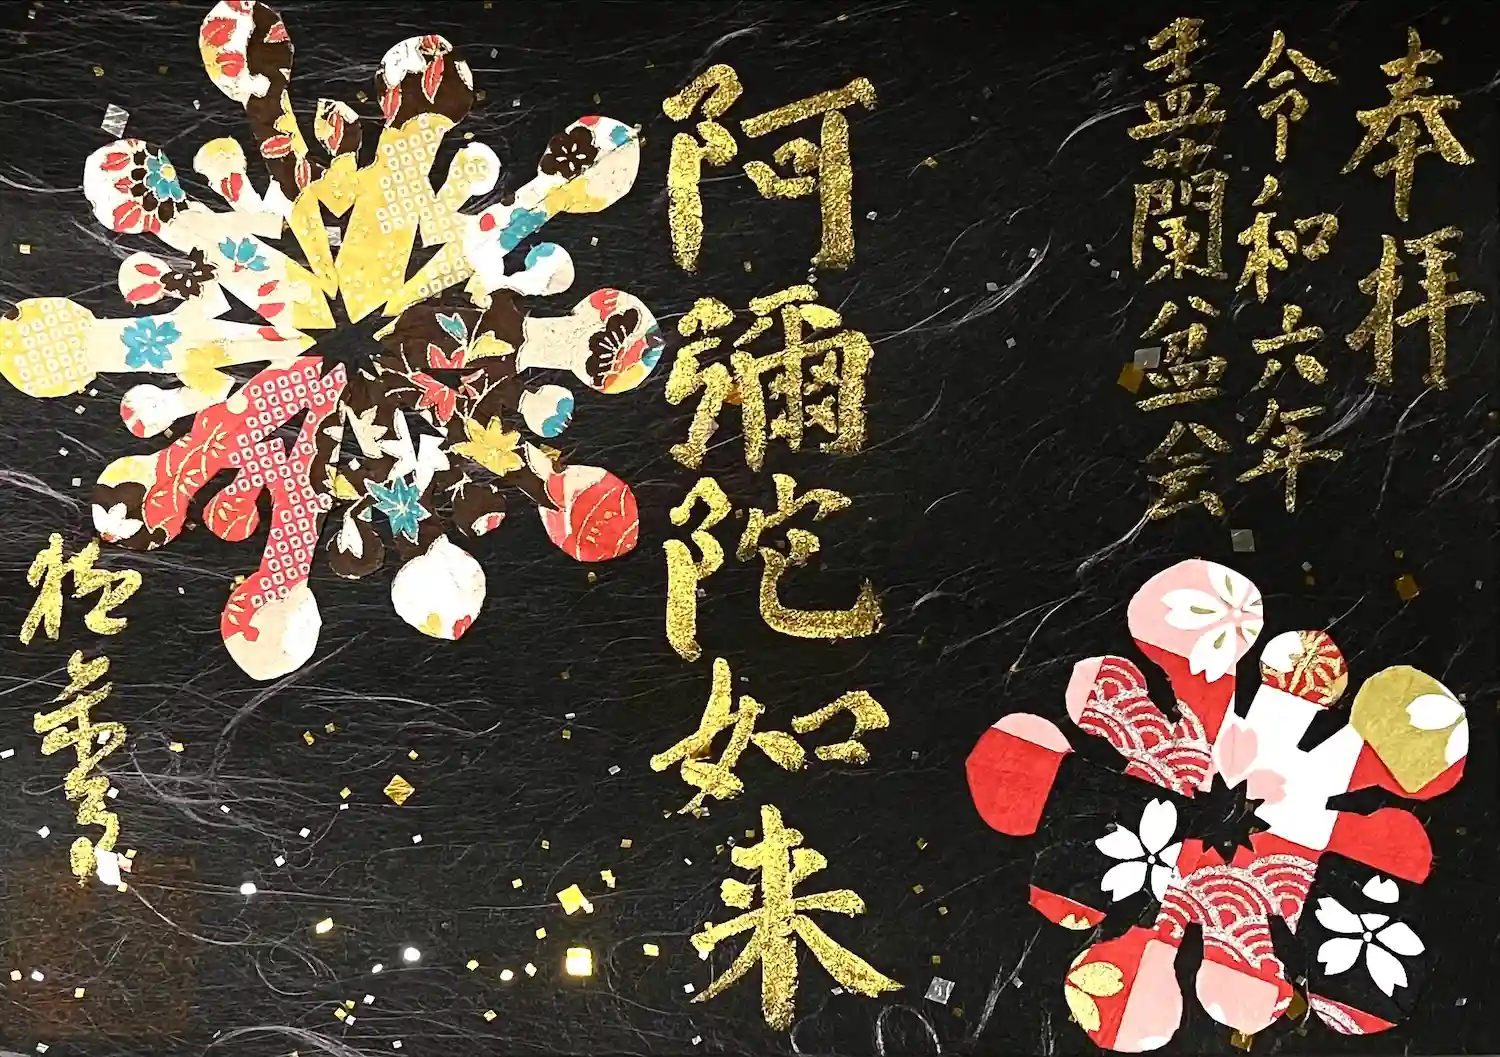 奉拝
令和六年
盂蘭盆会
阿彌陀如来